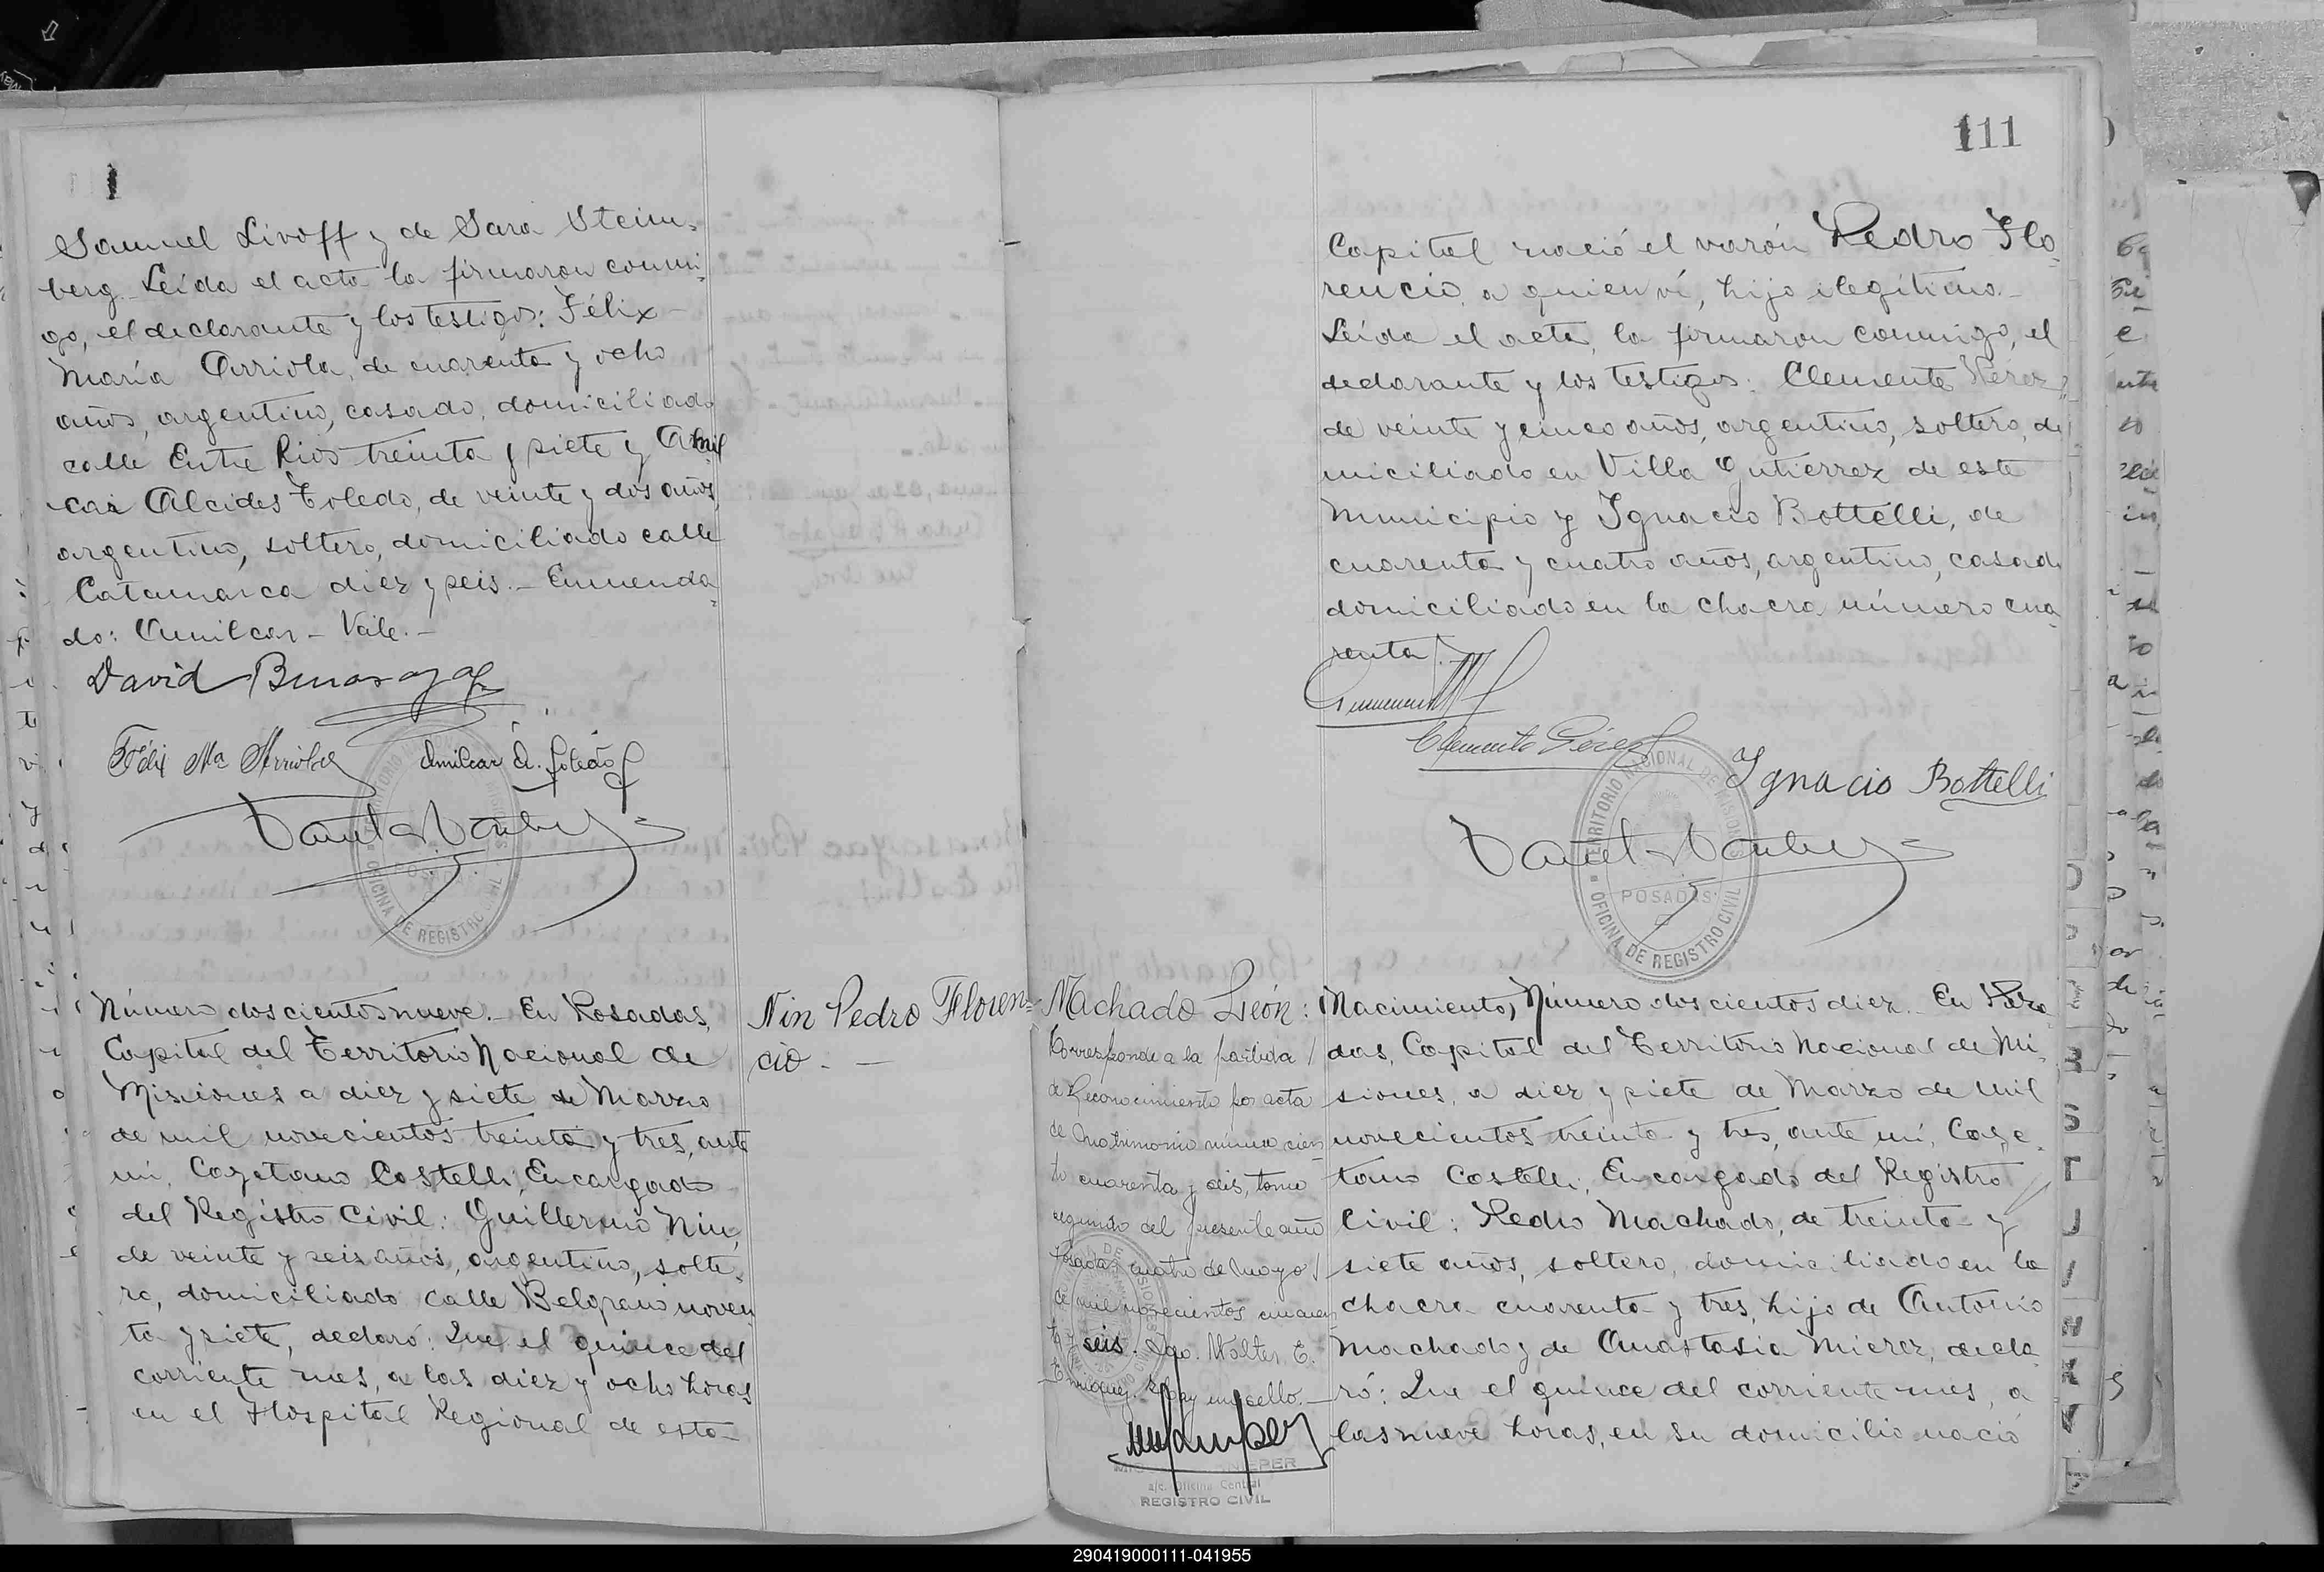 Samuel Livoff y de Sara Steim-
berg.- Leída el acta la firmaron conmi-
go, el declarante y los testigos: Félix
María Arriola, de cuarenta y ocho
años, argentino, casado, domiciliado
calle Entre Rios treinta y siete y Amil
car Alcides Toledo, de veinte y dos años,
argentino, soltero, domiciliado calle
Catamarca diez y seis.- Enmenda-
do: Amilcar - Vale.-
David
Félix Ma Arriola
Amilcar A. Toledo
TERRITORIO NACIONAL DE MISIONES
POSADAS
OFICINA DE REGISTRO CIVIL
Número doscientos nueve.- En Posadas,
Capital del Territorio Nacional de
Misiones a diez y siete de Marzo
de mil novecientos treinta y tres, ante
mi, Cayetano Castelli, Encargado
del Registro Civil: Guillermo Nin,
de veinte y seis años, argentino, solte-
ro, domiciliado calle Belgrano noven
ta y siete, declaró: Que el quince del
corriente mes, a las diez y ocho horas
en el Hospital Regional de esta
Nin Pedro Floren-
cio.-
111
Capital nació el varón Pedro Flo-
rencio, a quien ví, hijo ilegítimo.-
Leída el acta, la firmaron conmigo, el
declarante y los testigos: Clemente Pérez,
de veinte y cinco años, argentino, soltero, do
miciliado en Villa Gutierrez de este
Municipio y Ignacio Bottelli, de
cuarenta y cuatro años, argentino, casado
domiciliado en la chacra número cua-
renta.-
Clemente Pérez
Ignacio Bottelli
TERRITORIO NACIONAL DE MISIONES
POSADAS
OFICINA DE REGISTRO CIVIL
Machado León:
Corresponde a la partida
de Reconocimiento por acta
de Matrimonio número cien
to cuarenta y seis, tomo
segundo del presente año
Posadas, cuatro de Mayo
de mil novecientos cuaren
ta y seis. Dgo. Walter E.
Enriquez. Hay un sello.-
a/c. Oficina Central
REGISTRO CIVIL
Nacimiento, Número doscientos diez.- En Posa-
das, Capital del Territorio Nacional de Mi-
siones, a diez y siete de Marzo de mil
novecientos treinta y tres, ante mí, Caye-
tano Castelli, Encargado del Registro
Civil: Pedro Machado, de treinta y
siete años, soltero, domiciliado en la
chacra cuarenta y tres, hijo de Antonio
Machado y de Anastasia Mierez, decla-
ró: Que el quince del corriente mes, a
las nueve horas, en su domicilio nació
290419000111-041955